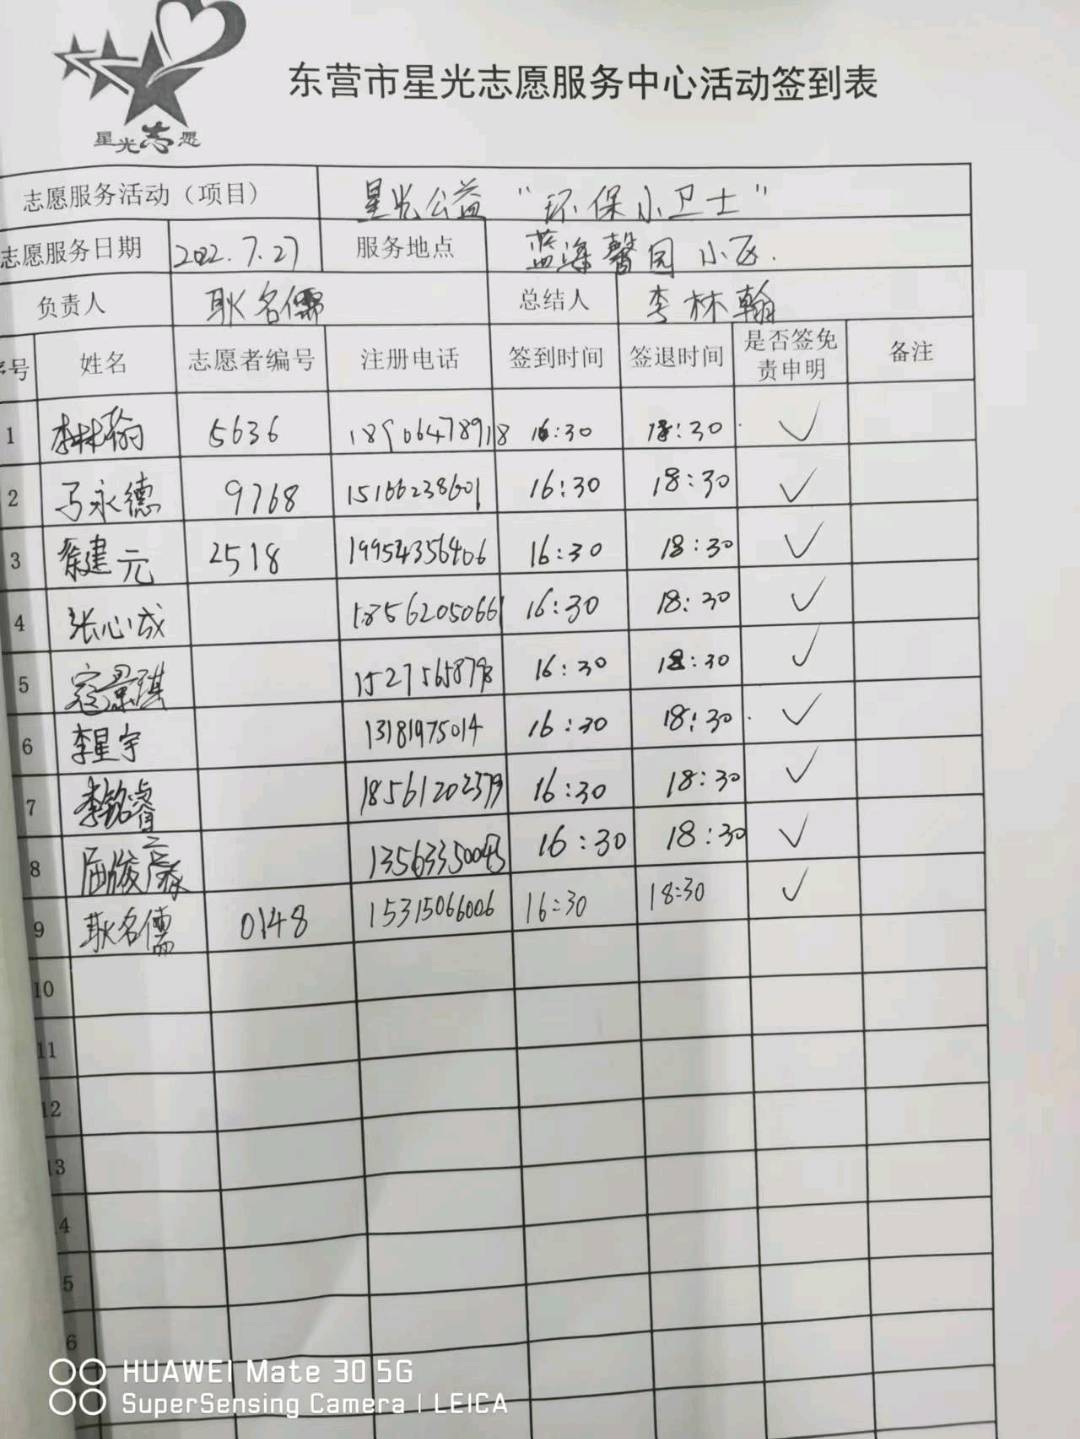 东营市星光志愿服务中心活动签到表
星光志愿
志愿服务活动（项目） 星光公益“环保小卫士”
志愿服务日期 2022.7.27 服务地点 蓝海馨园小区.
负责人 耿名儒 总结人 李林翰
序号 姓名 志愿者编号 注册电话 签到时间 签退时间 是否签免责申明 备注
1 李林翰 5636 18906478918 16:30 18:30 ✓
2 马永德 9768 15166238601 16:30 18:30 ✓
3 建元 2518 19954356406 16:30 18:30 ✓
4 张心成 18562050661 16:30 18:30 ✓
5 寇景琪 15275658793 16:30 18:30 ✓
6 李星宇 13181975014 16:30 18:30 ✓
7 李铭睿 18561202379 16:30 18:30 ✓
8 16:30 18:30 ✓
9 耿名儒 0148 15315066006 16:30 18:30 ✓
10
11
12
13
4
5
6
HUAWEI Mate 30 5G
SuperSensing Camera | LEICA